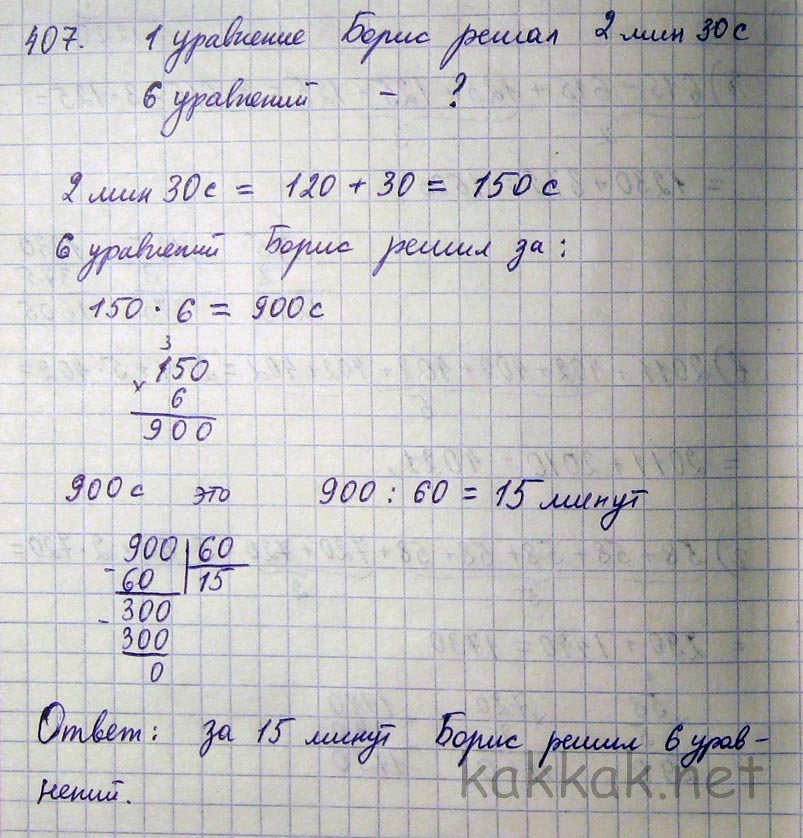 407. 1 уравнение Борис решал 2 мин 30 с
6 уравнений - ?
2 мин 30 с = 120 + 30 = 150 с
6 уравнений Борис решил за:
150 · 6 = 900 с
3
150
× 6
900
900 с это 900 : 60 = 15 минут
900 60
- 60 15
300
- 300
0
Ответ: за 15 минут Борис решил 6 урав-
нений.
kakkak.net